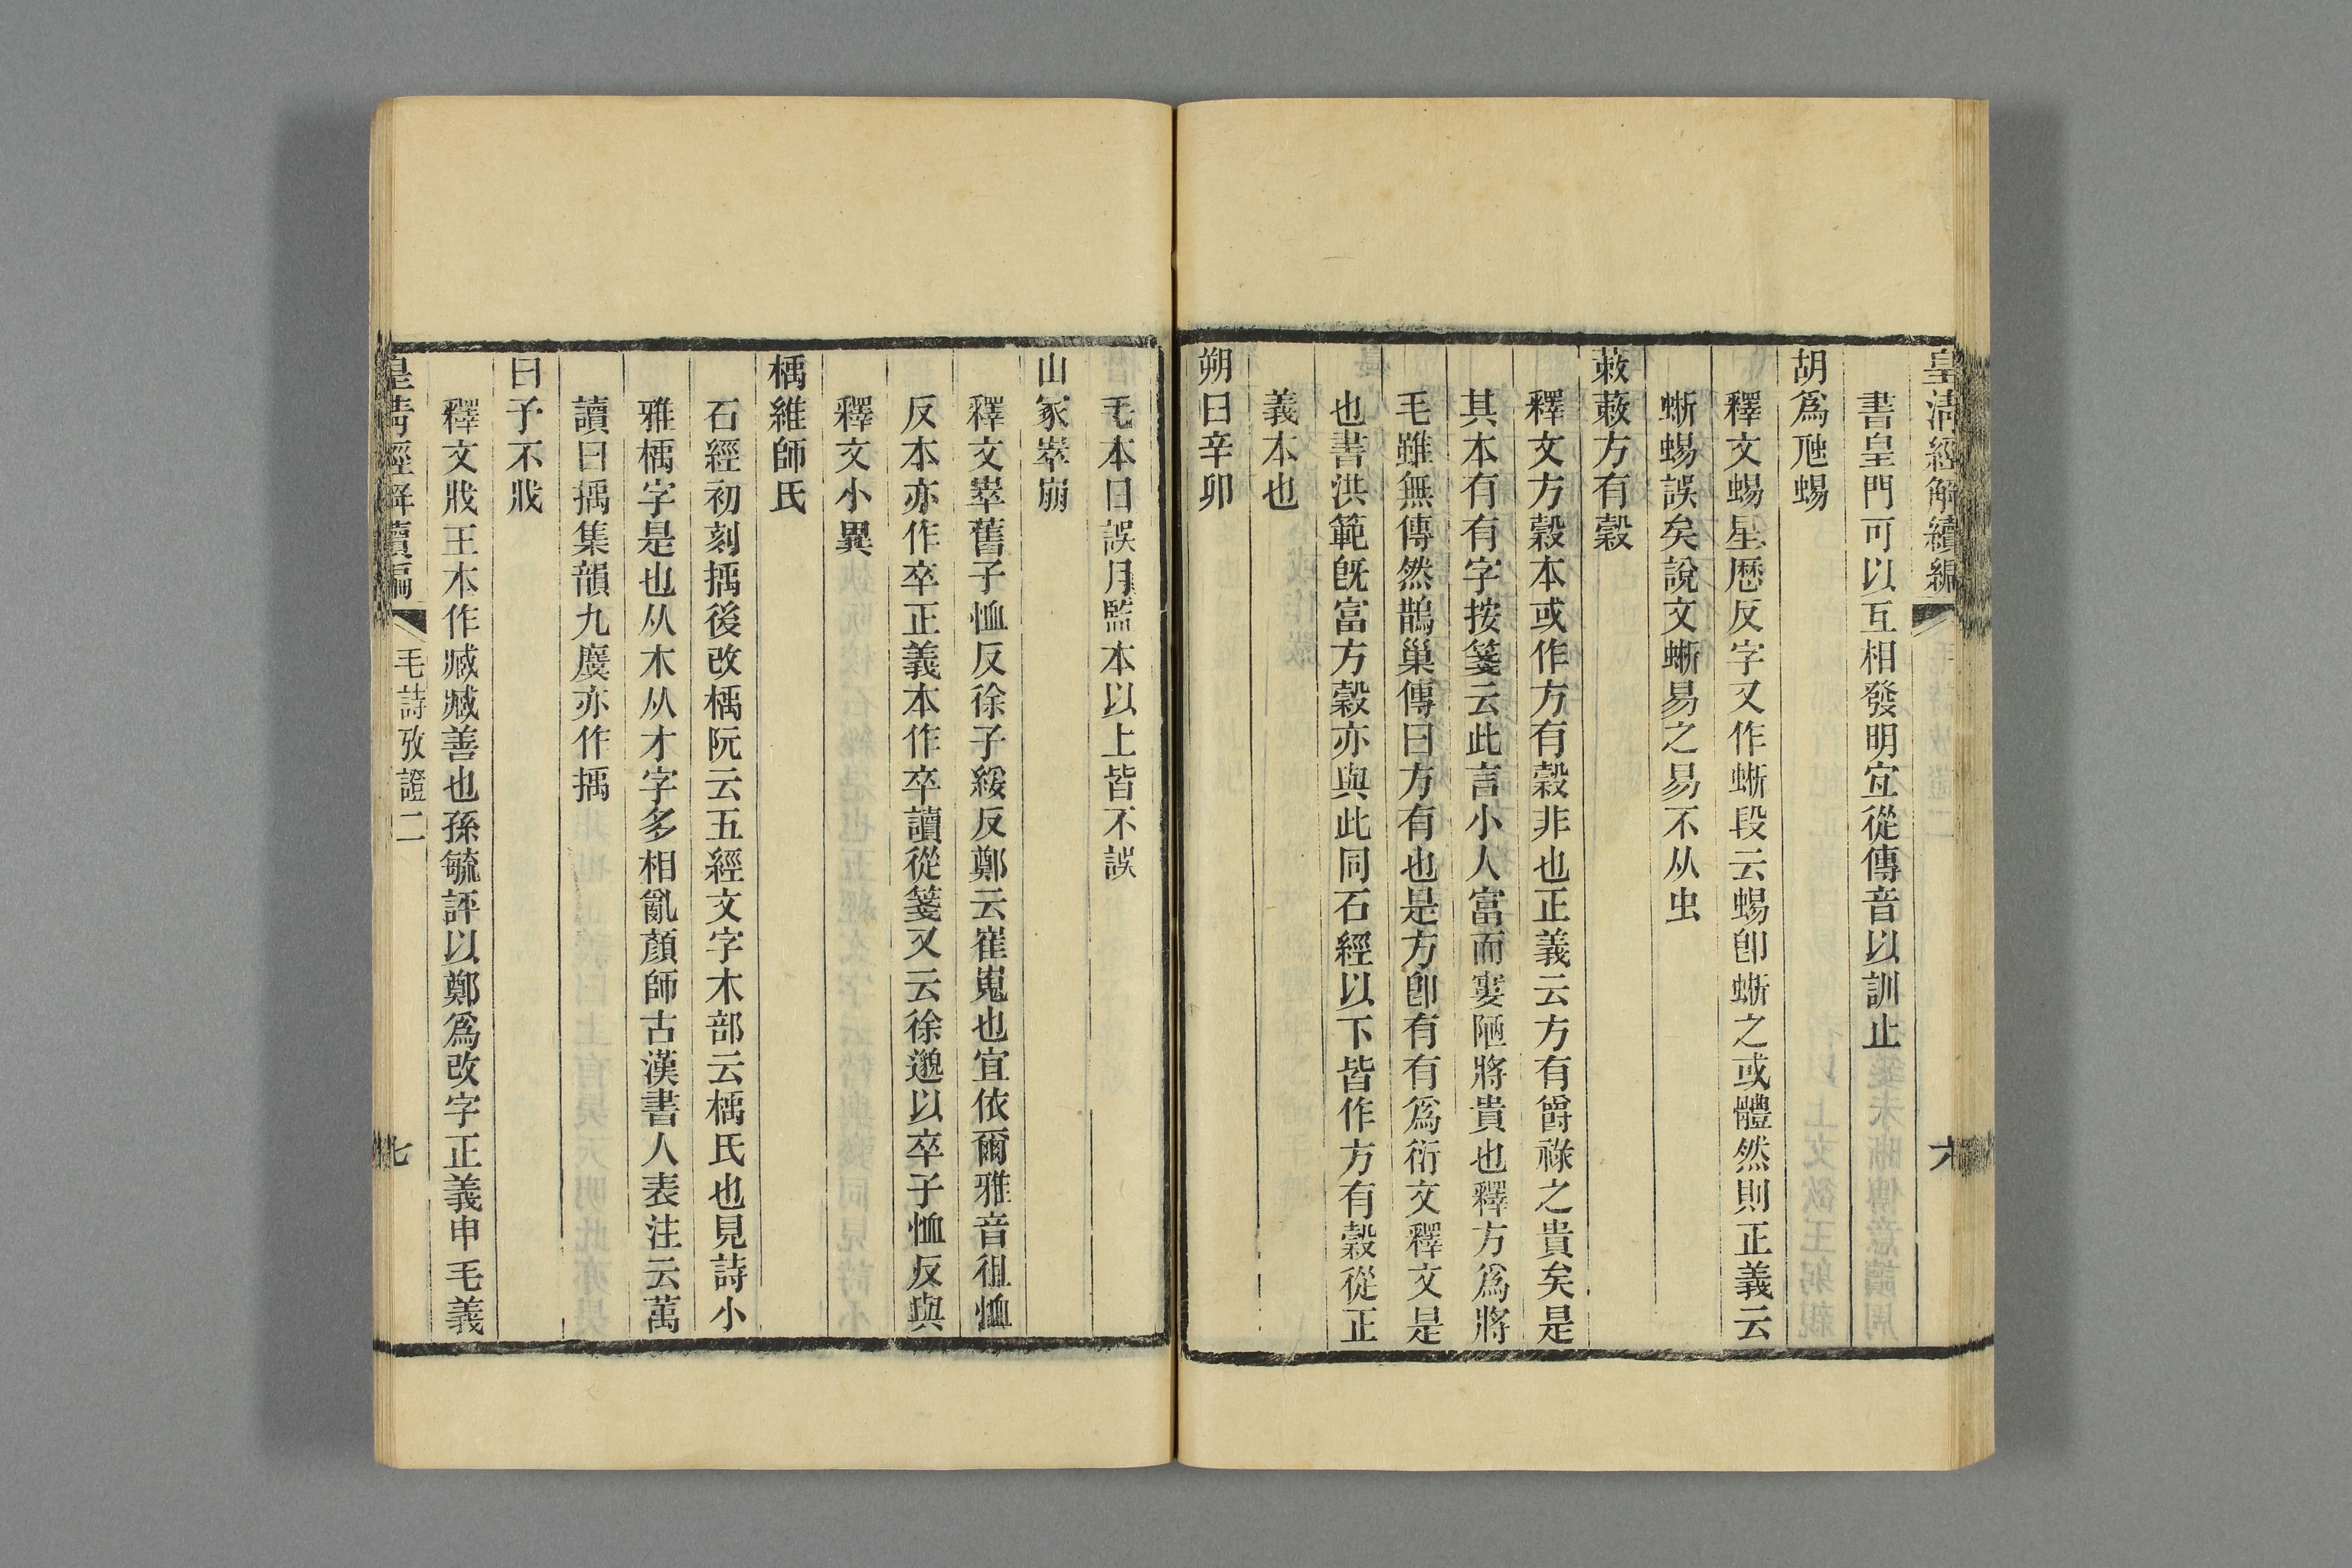 皇清經解續編
六
書皇門可以互相發明宐從傳音以訓止
胡爲虺蜴
釋文蜴星歷反字又作蜥段云蜴卽蜥之或體然則正義云
蜥蜴誤矣說文蜥易之易不从虫
蔌蔌方有穀
釋文方穀本或作方有穀非也正義云方有爵祿之貴矣是
其本有有字按箋云此言小人富而窶陋將貴也釋方爲將
毛雖無傳然鵲巢傳曰方有也是方卽有有爲衍文釋文是
也書洪範旣富方穀亦與此同石經以下皆作方有穀從正
義本也
朔日辛卯
毛本日誤月監本以上皆不誤
山冢崒崩
釋文崒舊子恤反徐子綏反鄭云崔嵬也宜依爾雅音徂恤
反本亦作卒正義本作卒讀從箋又云徐邈以卒子恤反與
釋文小異
楀維師氏
石經初刻擩後改楀阮云五經文字木部云楀氏也見詩小
雅楀字是也从木从才字多相亂顏師古漢書人表注云萬
讀曰擩集韻九麌亦作擩
曰予不戕
釋文戕王本作臧臧善也孫毓評以鄭爲改字正義申毛義
皇清經解續編
毛詩攷證二
七